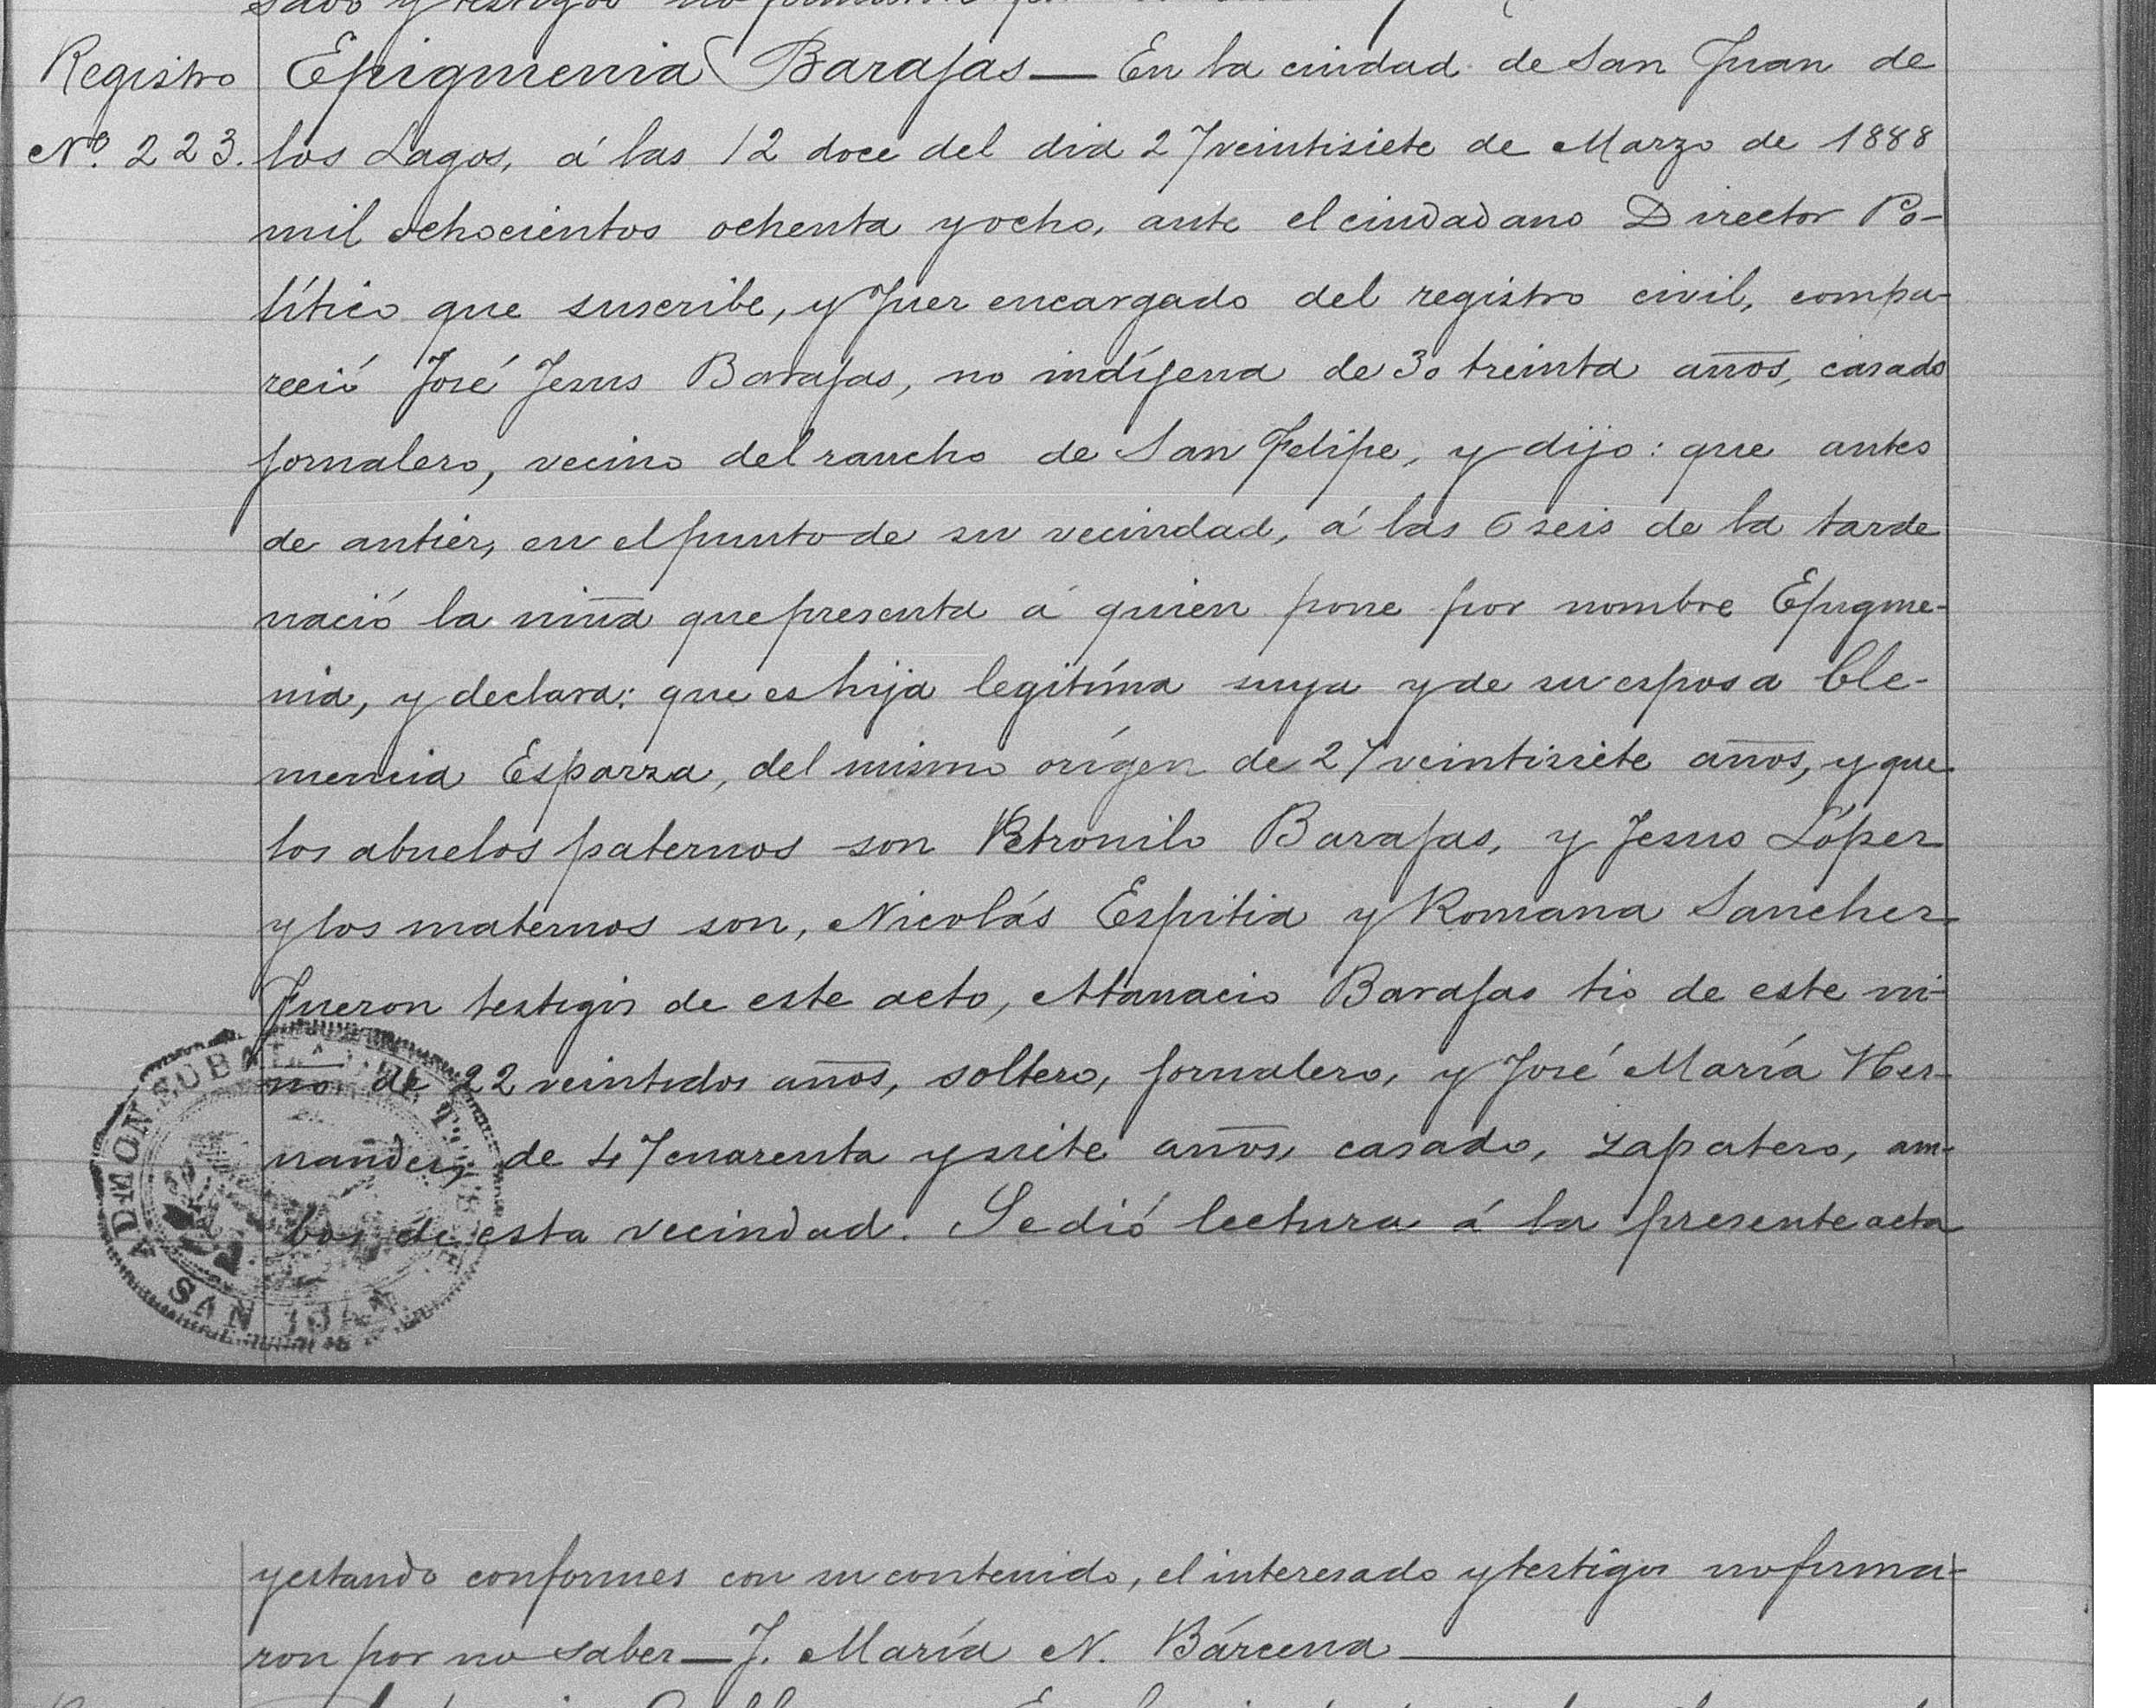 Registro
Nº 223.
Epigmenia Barajas — En la ciudad de San Juan de
los Lagos, á las 12 doce del dia 27 veintisiete de Marzo de 1888
mil ochocientos ochenta y ocho, ante el ciudadano Director Po-
lítico que suscribe, y Juez encargado del registro civil, compa-
reció José Jesus Barajas, no indígena de 30 treinta años, casado
jornalero, vecino del rancho de San Felipe, y dijo: que antes
de antier, en el punto de su vecindad, á las 6 seis de la tarde
nació la niña que presenta á quien pone por nombre Epigme-
nia, y declara: que es hija legitíma suya y de su esposa Cle-
mencia Esparza, del mismo orígen de 27 veintisiete años, y que
los abuelos paternos son Petronilo Barajas, y Jesus López
y los maternos son, Nicolás Espitia y Romana Sanchez
Fueron testigos de este acto, Atanacio Barajas tio de este ni-
ño de 22 veintidos años, soltero, jornalero, y José María Her-
nandez, de 47 cuarenta y siete años, casado, zapatero, am-
bos de esta vecindad. Se dió lectura á la presente acta
ADMON SUBAL DE
SAN JUAN
y estando conformes con su contenido, el interesado y testigos no firma-
ron por no saber — J. María N. Bárcena